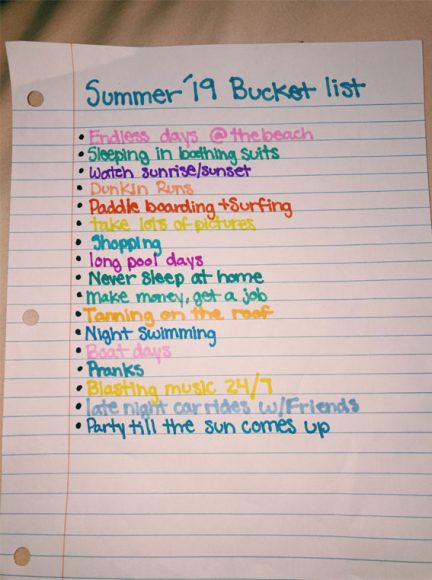 Summer '19 Bucket list
• Endless days @ the beach
• Sleeping in bathing suits
• Watch sunrise/sunset
• Dunkin Runs
• Paddle boarding + Surfing
• take lots of pictures
• Shopping
• long pool days
• Never Sleep at home
• Make money, get a job
• Tanning on the roof
• Night Swimming
• Boat days
• Pranks
• Blasting music 24/7
• late night car rides w/Friends
• Party till the sun comes up